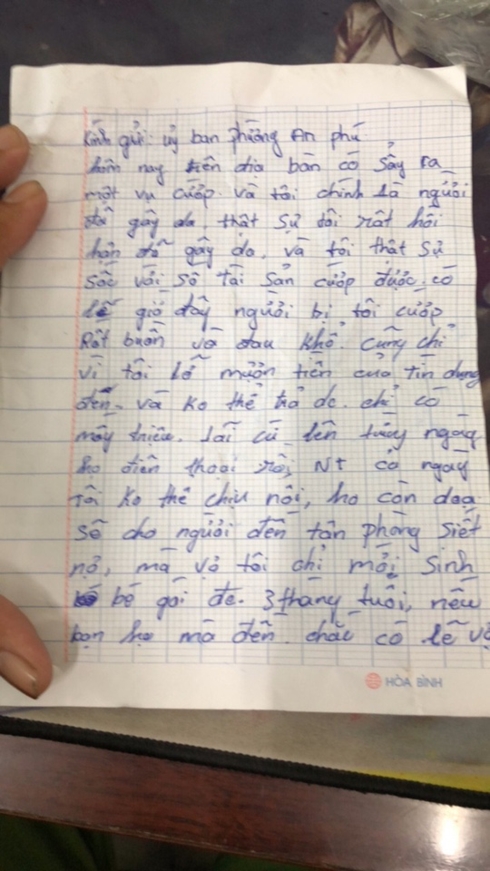 Kính gửi: uỷ ban phường An phú
hôm nay trên địa bàn có sảy ra
một vụ cướp. và tôi chính là người
đã gây da, thật sự tôi rất hối
hận đã gây da, và tôi thật sự
sốc với số tài sản cướp được. có
lẽ giờ đây người bị tôi cướp
Rất buồn và đau khổ. cũng chỉ
vì tôi lỡ mượn tiền của Tín dụng
đen. và ko thể trả dc. chỉ có
mấy triệu. lãi cứ lên từng ngày
họ điện thoại rồi NT cả ngày
Tôi ko thể chịu nổi, họ còn doạ
sẽ cho người đến tận phòng siết
nợ, mà vợ tôi chỉ mới sinh
bé gái đc. 3 tháng tuổi, nếu
bọn họ mà đến. chắc có lẽ vợ
HÒA BÌNH